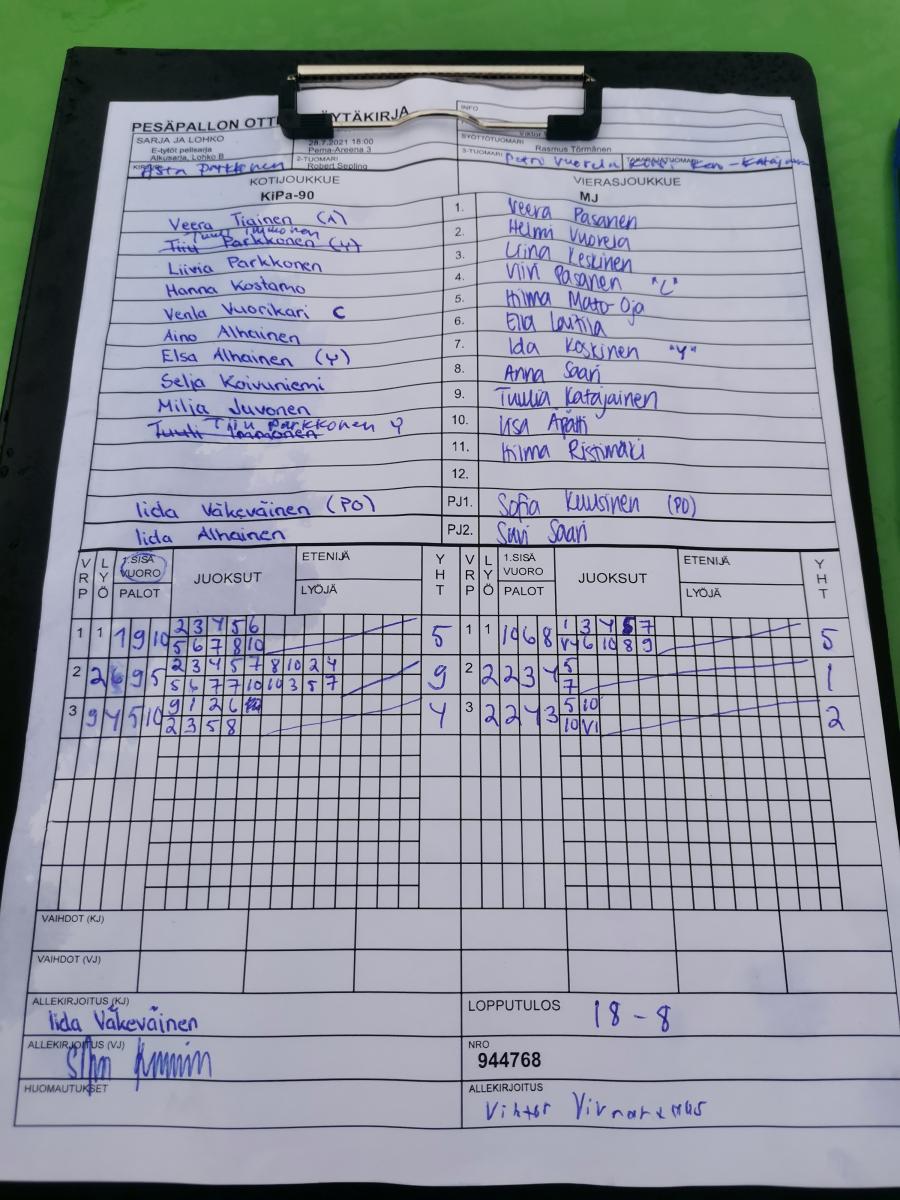 PESÄPALLON OTT YTÄKIRJA
INFO
SARJA JA LOHKO
E-tytöt pelisarja
Alkusarja, Lohko B
28.7.2021 18:00
Pema-Areena 3
2-TUOMARI
Robert Sepling
SYÖTTÖTUOMARI
Rasmus Törmänen
3-TUOMARI Petri Vuorela
Asta Pitkänen
KOTIJOUKKUE VIERASJOUKKUE
KiPa-90 MJ
Veera Tiainen (A) 1. Veera Pasanen
Tuuli Immonen
Tiiu Parkkonen (Y) 2. Helmi Vuorela
Liivia Parkkonen 3. Keskinen
Hanna Kostamo 4. Viivi Pasanen "L"
Venla Vuorikari C 5. Hilma Matto-Oja
Aino Alhainen 6. Ella Lautila
Elsa Alhainen (Y) 7. Ida Koskinen "Y"
Selja Koivuniemi 8. Anna Saari
Milja Juvonen 9. Tuulia Katajainen
Tiiu Parkkonen Y
Tuuli Immonen 10. Iisa
11. Hilma Ristimäki
12.
Iida Väkeväinen (PO) PJ1. Sofia Kuusinen (PO)
Iida Alhainen PJ2. Suvi Saari
VRP LYÖ 1.SISÄ VUORO PALOT JUOKSUT ETENIJÄ LYÖJÄ YHT VRP LYÖ 1.SISÄ VUORO PALOT JUOKSUT ETENIJÄ LYÖJÄ YHT
1 1 1 9 10 2 3 4 5 6 5 1 1 10 6 8 1 3 4 5 7 5
5 6 7 8 10 V4 6 10 8 9
2 2 6 9 5 2 3 4 5 7 8 10 2 4 9 2 2 2 3 4 5 1
5 6 7 7 10 10 3 5 7 7
3 9 4 5 10 9 1 2 6 4 3 2 2 4 3 5 10 2
2 3 5 8 10 V1
VAIHDOT (KJ)
VAIHDOT (VJ)
ALLEKIRJOITUS (KJ)
Iida Väkeväinen
LOPPUTULOS 18-8
ALLEKIRJOITUS (VJ)
NRO
944768
HUOMAUTUKSET
ALLEKIRJOITUS